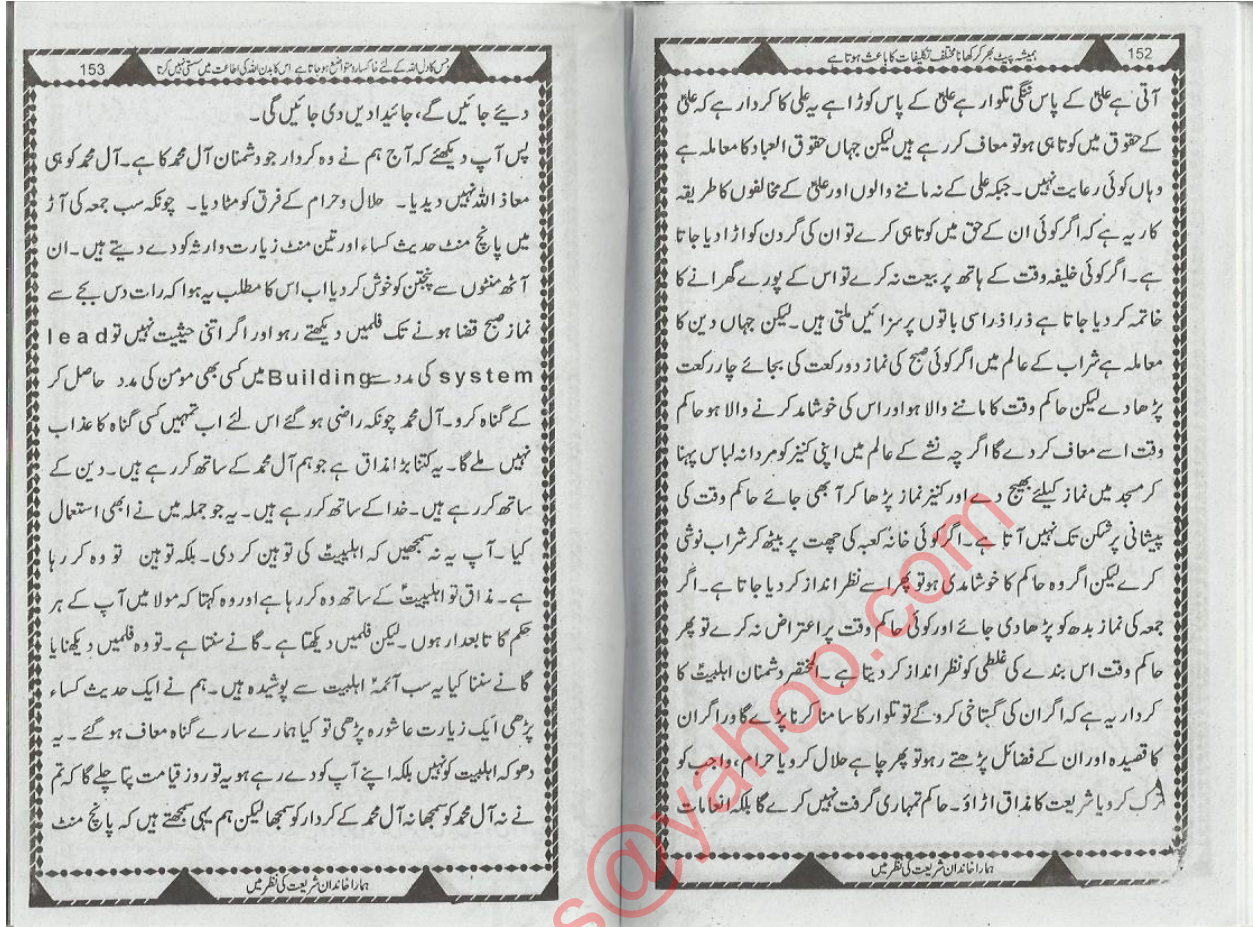 152
ہمیشہ پیٹ بھر کر کھانا مختلف تکلیفات کا باعث ہوتا ہے
آتی ہے علیؑ کے پاس ننگی تلوار ہے علیؑ کے پاس کوڑا ہے یہ علی کا کردار ہے کہ علیؑ
کے حقوق میں کوتاہی ہو تو معاف کر رہے ہیں لیکن جہاں حقوق العباد کا معاملہ ہے
وہاں کوئی رعایت نہیں۔ جبکہ علی کے نہ ماننے والوں اور علیؑ کے مخالفوں کا طریقہ
کار یہ ہے کہ اگر کوئی ان کے حق میں کوتاہی کرے تو ان کی گردن کو اڑا دیا جاتا
ہے۔ اگر کوئی خلیفہ وقت کے ہاتھ پر بیعت نہ کرے تو اس کے پورے گھرانے کا
خاتمہ کر دیا جاتا ہے ذرا ذرا سی باتوں پر سزائیں ملتی ہیں۔ لیکن جہاں دین کا
معاملہ ہے شراب کے عالم میں اگر کوئی صبح کی نماز دو رکعت کی بجائے چار رکعت
پڑھا دے لیکن حاکم وقت کا ماننے والا ہو اور اس کی خوشامد کرنے والا ہو حاکم
وقت اسے معاف کر دے گا اگر چہ نشے کے عالم میں اپنی کنیز کو مردانہ لباس پہنا
کر مسجد میں نماز کیلئے بھیج دے اور کنیز نماز پڑھا کر آ بھی جائے حاکم وقت کی
پیشانی پر شکن تک نہیں آتا ہے۔ اگر کوئی خانہ کعبہ کی چھت پر بیٹھ کر شراب نوشی
کرے لیکن اگر وہ حاکم کا خوشامدی ہو تو پھر اسے نظر انداز کر دیا جاتا ہے۔ اگر
جمعہ کی نماز بدھ کو پڑھا دی جائے اور کوئی حاکم وقت پر اعتراض نہ کرے تو پھر
حاکم وقت اس بندے کی غلطی کو نظر انداز کر دیتا ہے۔ المختصر دشمنان اہلبیتؑ کا
کردار یہ ہے کہ اگر ان کی گستاخی کرو گے تو تلوار کا سامنا کرنا پڑے گا ور اگر ان
کا قصیدہ اور ان کے فضائل پڑھتے رہو تو پھر چاہے حلال کرو یا حرام، واجب کو
ترک کرو یا شریعت کا مذاق اڑاؤ۔ حاکم تمہاری گرفت نہیں کرے گا بلکہ انعامات
ہمارا خاندان شریعت کی نظر میں
جس کا دل اللہ کے لئے خاکسار و متواضع ہو جاتا ہے اس کا بدن اللہ کی اطاعت میں سستی نہیں کرتا
153
دیئے جائیں گے، جائیدادیں دی جائیں گی۔
پس آپ دیکھئے کہ آج ہم نے وہ کردار جو دشمنان آل محمد کا ہے۔ آل محمد کو ہی
معاذ اللہ نہیں دیدیا۔ حلال و حرام کے فرق کو مٹا دیا۔ چونکہ سب جمعہ کی آڑ
میں پانچ منٹ حدیث کساء اور تین منٹ زیارت وارثہ کو دے دیتے ہیں۔ ان
آٹھ منٹوں سے پنجتن کو خوش کر دیا اب اس کا مطلب یہ ہوا کہ رات دس بجے سے
نماز صبح قضا ہونے تک فلمیں دیکھتے رہو اور اگر اتنی حیثیت نہیں تو lead
system کی مدد سے Building میں کسی بھی مومن کی مدد حاصل کر
کے گناہ کرو۔ آل محمد چونکہ راضی ہو گئے اس لئے اب تمہیں کسی گناہ کا عذاب
نہیں ملے گا۔ یہ کتنا بڑا مذاق ہے جو ہم آل محمد کے ساتھ کر رہے ہیں۔ دین کے
ساتھ کر رہے ہیں۔ خدا کے ساتھ کر رہے ہیں۔ یہ جو جملہ میں نے ابھی استعمال
کیا۔ آپ یہ نہ سمجھیں کہ اہلبیتؑ کی توہین کر دی۔ بلکہ توہین تو وہ کر رہا
ہے۔ مذاق تو اہلبیتؑ کے ساتھ وہ کر رہا ہے اور وہ کہتا کہ مولا میں آپ کے ہر
حکم کا تابعدار ہوں۔ لیکن فلمیں دیکھتا ہے۔ گانے سنتا ہے۔ تو وہ فلمیں دیکھنا یا
گانے سننا کیا یہ سب آئمہؑ اہلبیت سے پوشیدہ ہیں۔ ہم نے ایک حدیث کساء
پڑھی ایک زیارت عاشورہ پڑھی تو کیا ہمارے سارے گناہ معاف ہو گئے۔ یہ
دھوکہ اہلبیت کو نہیں بلکہ اپنے آپ کو دے رہے ہو یہ تو روز قیامت پتا چلے گا کہ تم
نے نہ آل محمد کو سمجھا نہ آل محمد کے کردار کو سمجھا لیکن ہم یہی سمجھتے ہیں کہ پانچ منٹ
ہمارا خاندان شریعت کی نظر میں
s@yahoo.com